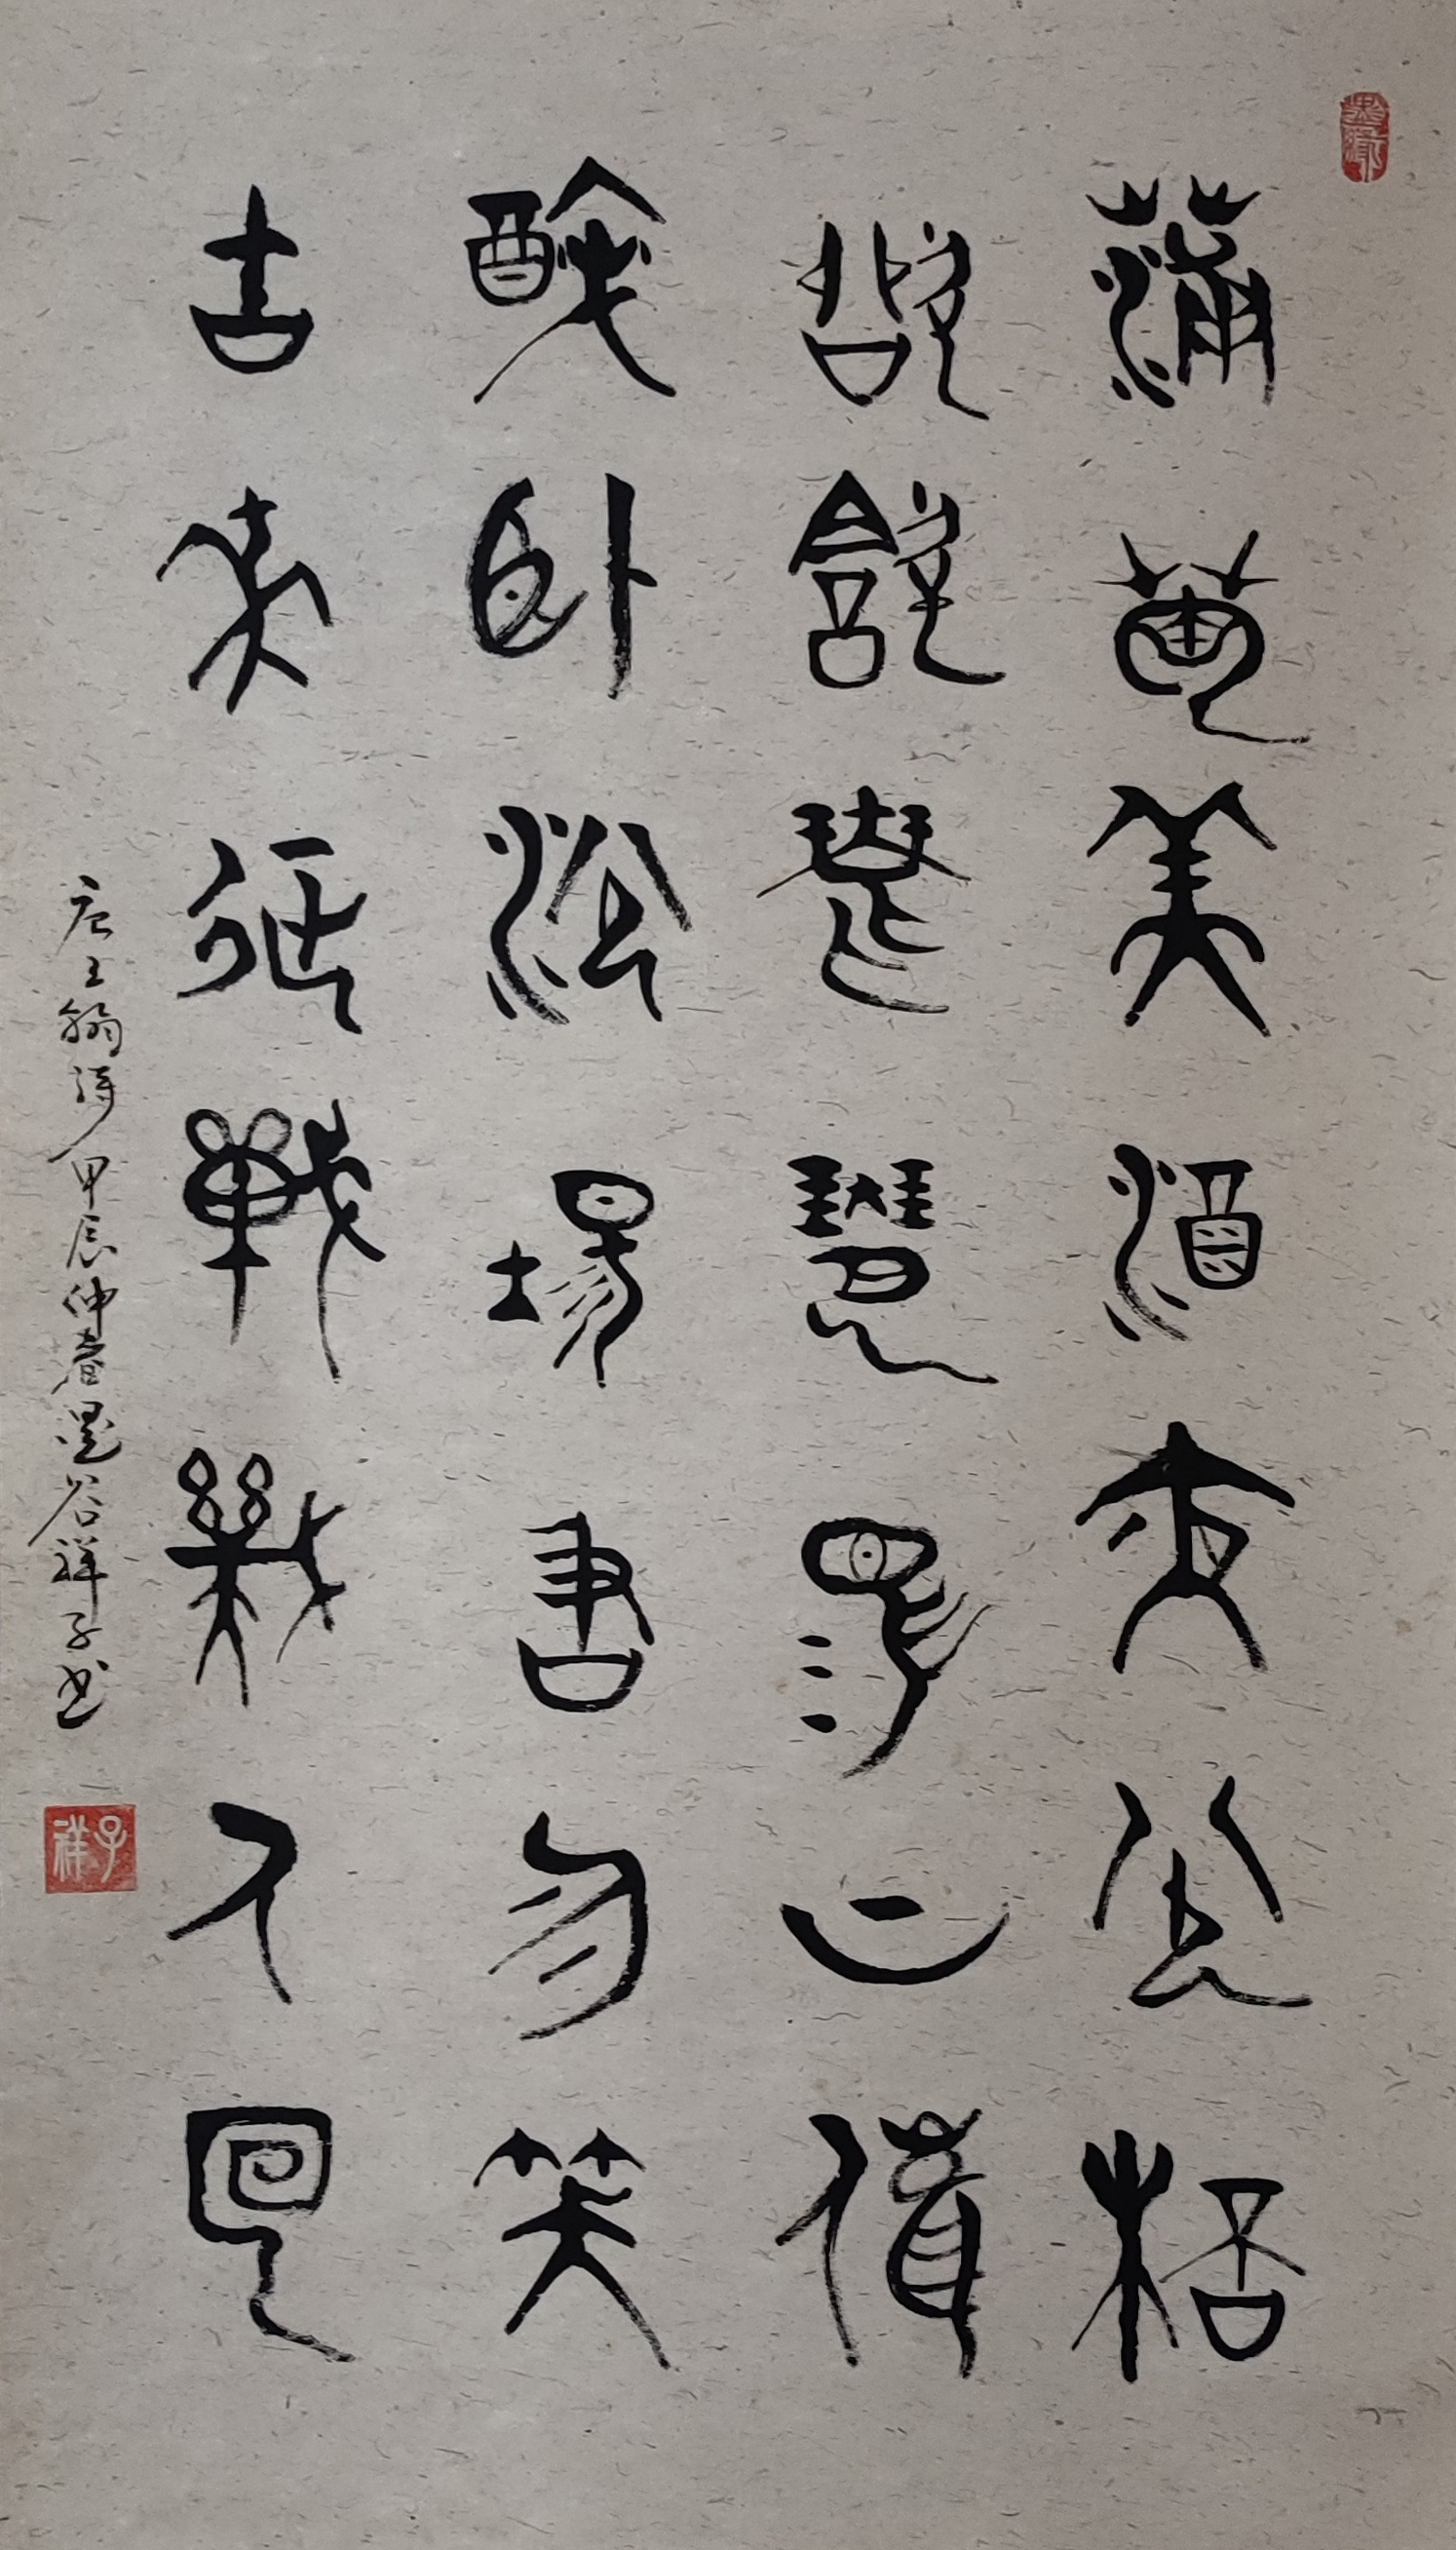 墨緣
蒲萄美酒夜光桮
欲飲琵琶馬上催
醉臥沙場君勿笑
古來征戰幾人回
唐王翰詩甲辰仲春墨谷祥子书
祥子